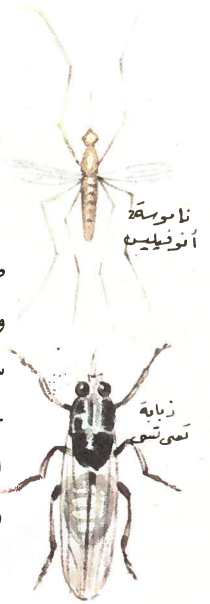 ناموسة
أنوفيليس
ذبابة
تسي تسي